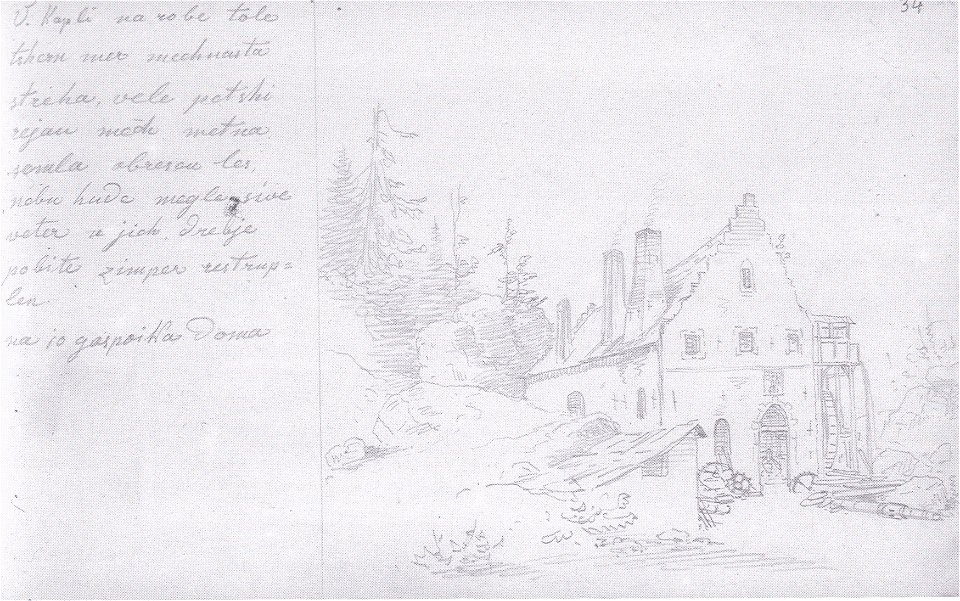 34
V. Kapli na robe tole
tshern mer mechnasta
streha, vele petshi
rejau mozh metna
semla obresou les,
nebu hude megle sive
veter u jich. Drebje
pobite zimper restrup=
len
na jo gospoika Doma